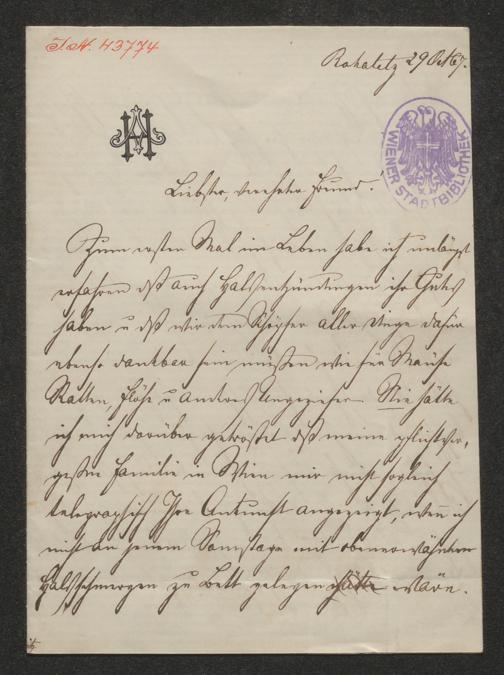 I.N. 43774
Rohatetz 29 Okt 67.
AH
WIENER STADTBIBLIOTHEK
Liebster, verehrter Freund!
Zum ersten Mal im Leben habe ich unlängst
erfahren dß auch Halsentzündungen ihr Gutes
haben u dß wir dem Schöpfer aller Dinge dafür
ebenso dankbar sein müßen wie für Mäuse
Ratten, Flöhe u andres Ungeziefer. Nie hätte
ich mich darüber getröstet dß meine pflichtver-
geßne Familie in Wien mir nicht sogleich
telegraphisch Ihre Ankunft angezeigt, wenn ich
nicht an jenem Samstage mit obenerwähnten
Halsschmerzen zu Bett gelegen hätte wäre.